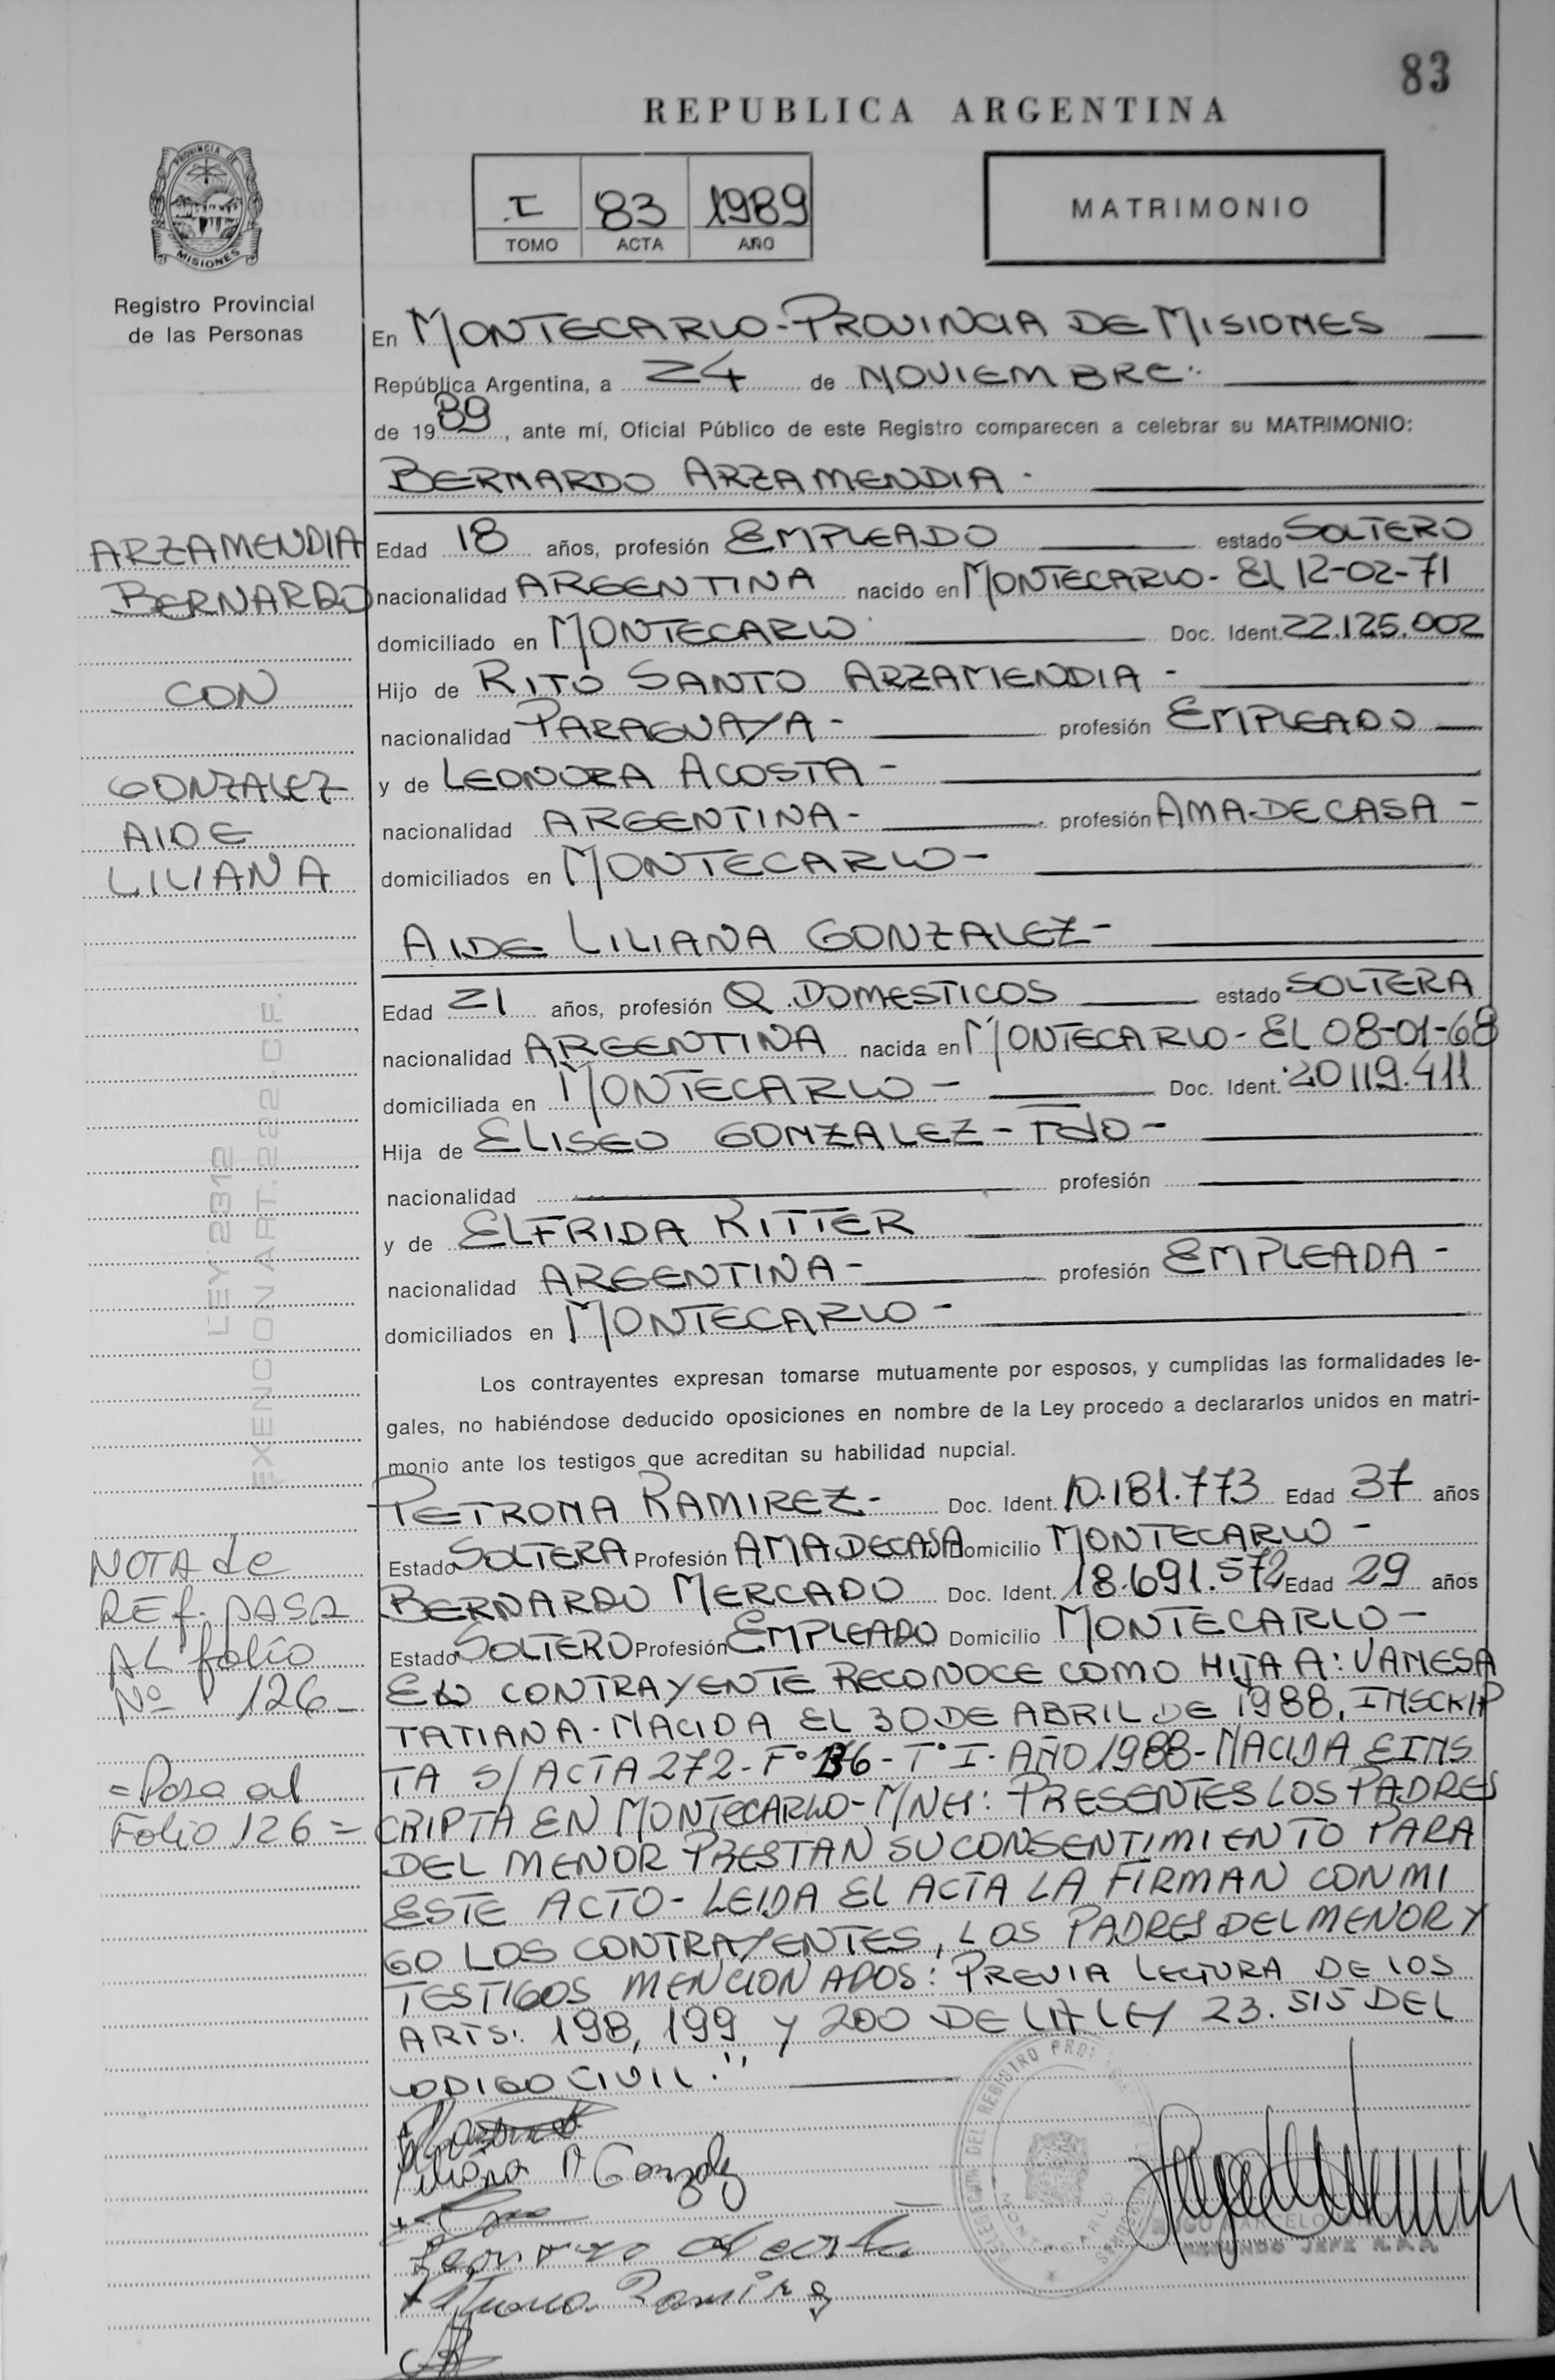 83
REPUBLICA ARGENTINA
PROVINCIA DE
MISIONES
Registro Provincial
de las Personas
I 83 1989
TOMO ACTA AÑO
MATRIMONIO
En MONTECARLO-PROVINCIA DE MISIONES
República Argentina, a 24 de NOVIEMBRE.
de 1989, ante mí, Oficial Público de este Registro comparecen a celebrar su MATRIMONIO:
BERNARDO ARZAMENDIA -
ARZAMENDIA
BERNARDO
CON
GONZALEZ
AIDE
LILIANA
Edad 18 años, profesión EMPLEADO estado SOLTERO
nacionalidad ARGENTINA nacido en MONTECARLO - EL 12-02-71
domiciliado en MONTECARLO Doc. Ident. 22.125.002
Hijo de RITO SANTO ARZAMENDIA -
nacionalidad PARAGUAYA - profesión EMPLEADO
y de LEONORA ACOSTA -
nacionalidad ARGENTINA - profesión AMA-DE CASA -
domiciliados en MONTECARLO -
AIDE LILIANA GONZALEZ -
Edad 21 años, profesión Q. DOMESTICOS estado SOLTERA
nacionalidad ARGENTINA nacida en MONTECARLO - EL 08-01-68
domiciliada en MONTECARLO - Doc. Ident. 20119.411
Hija de ELISEO GONZALEZ - Fdo -
nacionalidad profesión
y de ELFRIDA RITTER
nacionalidad ARGENTINA - profesión EMPLEADA -
domiciliados en MONTECARLO -
LEY 2312
EXENCION ART. 22 - C.F.
Los contrayentes expresan tomarse mutuamente por esposos, y cumplidas las formalidades le-
gales, no habiéndose deducido oposiciones en nombre de la Ley procedo a declararlos unidos en matri-
monio ante los testigos que acreditan su habilidad nupcial.
PETRONA RAMIREZ - Doc. Ident. 10.181.773 Edad 37 años
Estado SOLTERA Profesión AMA DE CASA Domicilio MONTECARLO -
BERNARDO MERCADO Doc. Ident. 18.691.572 Edad 29 años
Estado SOLTERO Profesión EMPLEADO Domicilio MONTECARLO -
EL CONTRAYENTE RECONOCE COMO HIJA A: VANESA
TATIANA - NACIDA EL 30 DE ABRIL DE 1988, INSCRIP
TA S/ ACTA 272 - F° 136 - T° I - AÑO 1988 - NACIDA E INS
CRIPTA EN MONTECARLO - MNES: PRESENTES LOS PADRES
DEL MENOR PRESTAN SU CONSENTIMIENTO PARA
ESTE ACTO - LEIDA EL ACTA LA FIRMAN CONMI
GO LOS CONTRAYENTES, LOS PADRES DEL MENOR Y
TESTIGOS MENCIONADOS: PREVIA LECTURA DE LOS
ARTS: 198, 199 Y 200 DE LA LEY 23.515 DEL
CODIGO CIVIL."
NOTA de
REf. PASA
AL folio
Nº 126 -
= Pasa al
Folio 126 =
Liliana A Gonzalez
Leonora Acosta
Petrona Ramirez
DELEGACION DEL REGISTRO
MONTECARLO
MISIONES
SEGUNDO JEFE